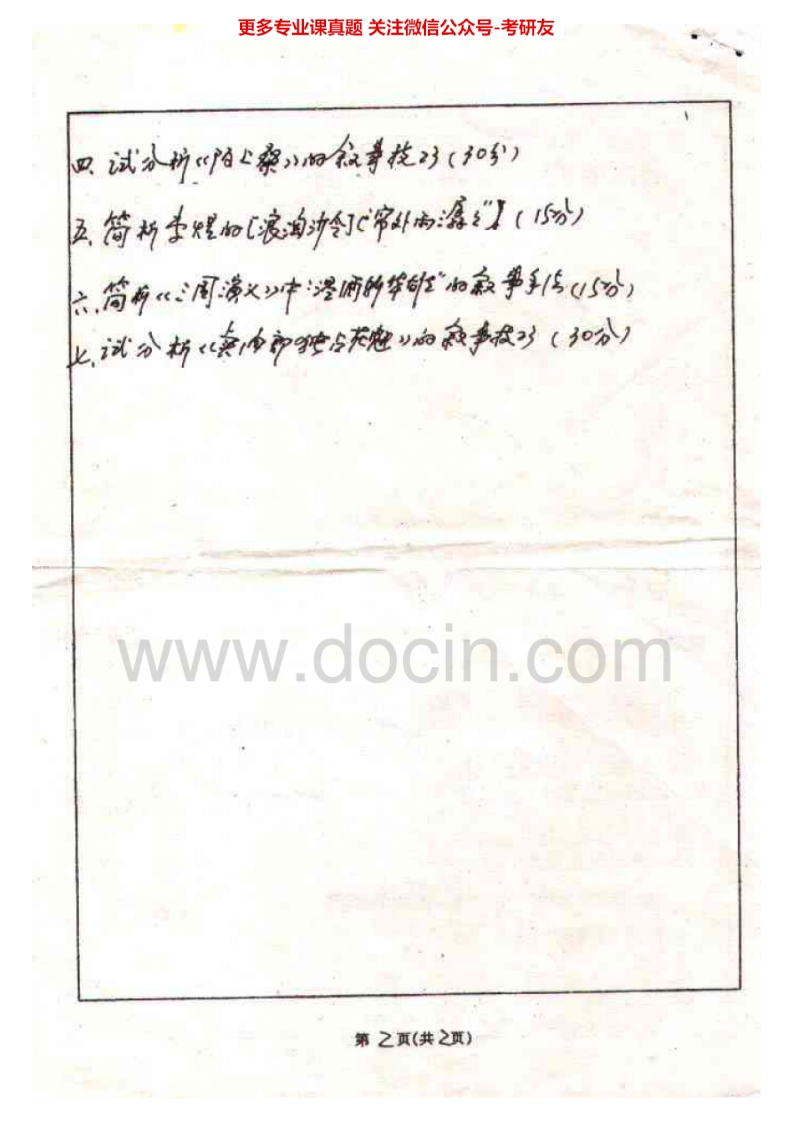 更多专业课真题 关注微信公众号-考研友
四、试分析《陌上桑》的叙事技巧(30分)
五、简析李煜的[浪淘沙令]("帘外雨潺潺")(15分)
六、简析《三国演义》中"温酒斩华雄"的叙事手法(15分)
七、试分析《卖油郎独占花魁》的叙事技巧(30分)
www.docin.com
第2页(共2页)